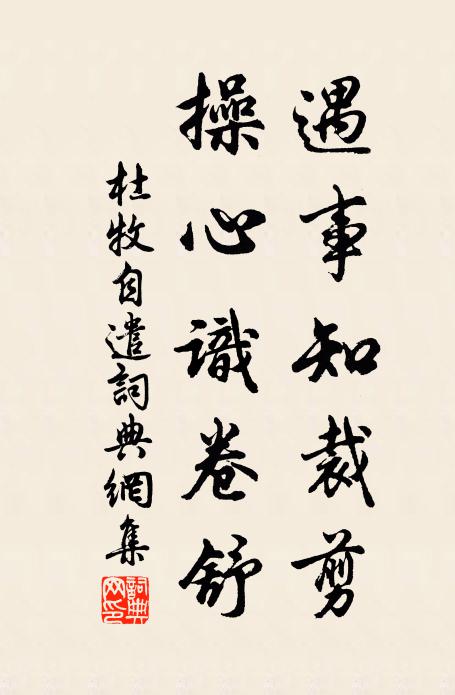 遇事知裁剪
操心識卷舒
杜牧自遣詞典網集
詞典網印